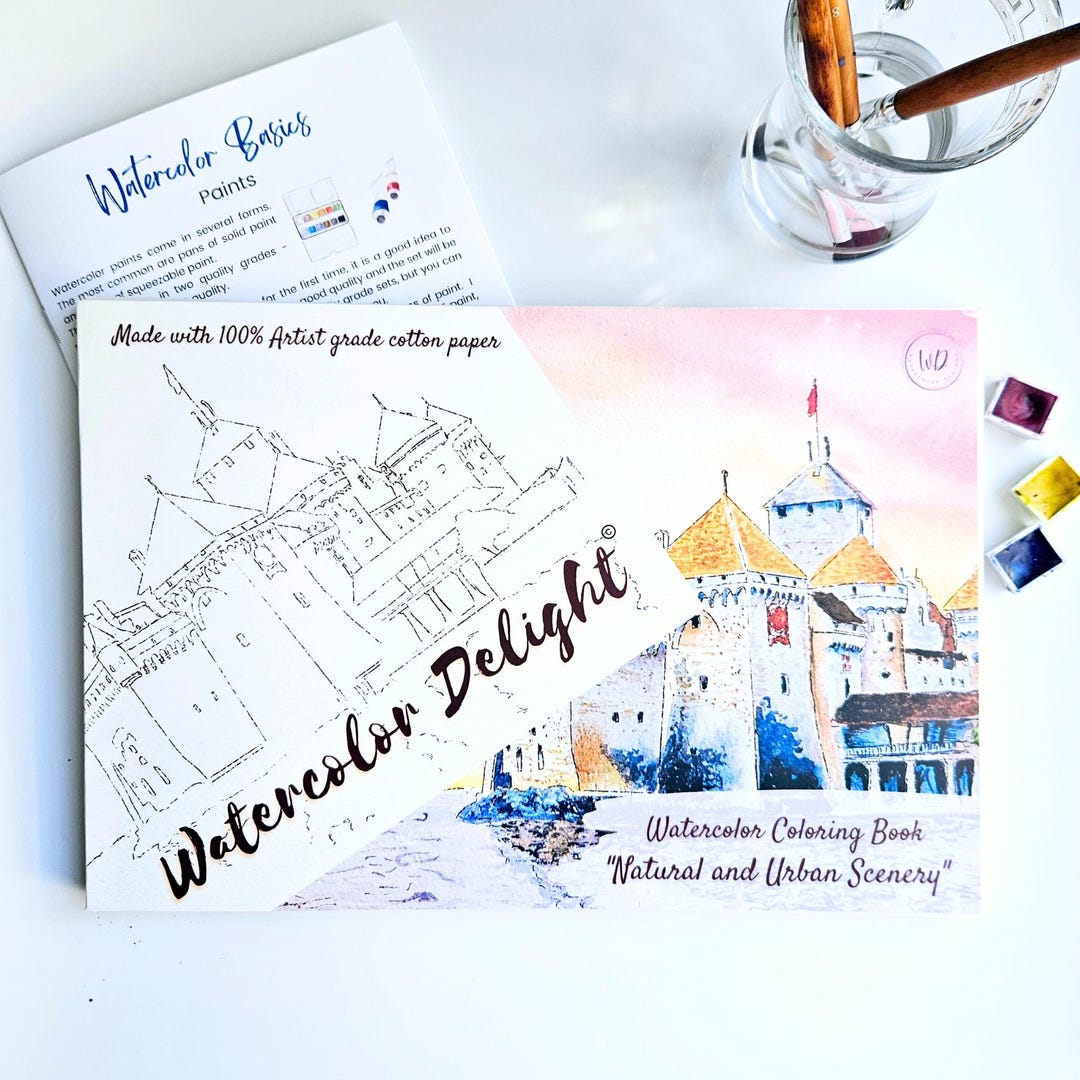 Watercolor Basics
Paints
Watercolor paints come in several forms.
The most common are pans of solid paint
of squeezable paint.
in two quality grades -
quality.
for the first time, it is a good idea to
good quality and the set will be
grade sets, but you can
of paint. I
paint,
Made with 100% Artist grade cotton paper
WD
Watercolor Delight©
Watercolor Coloring Book
"Natural and Urban Scenery"
8